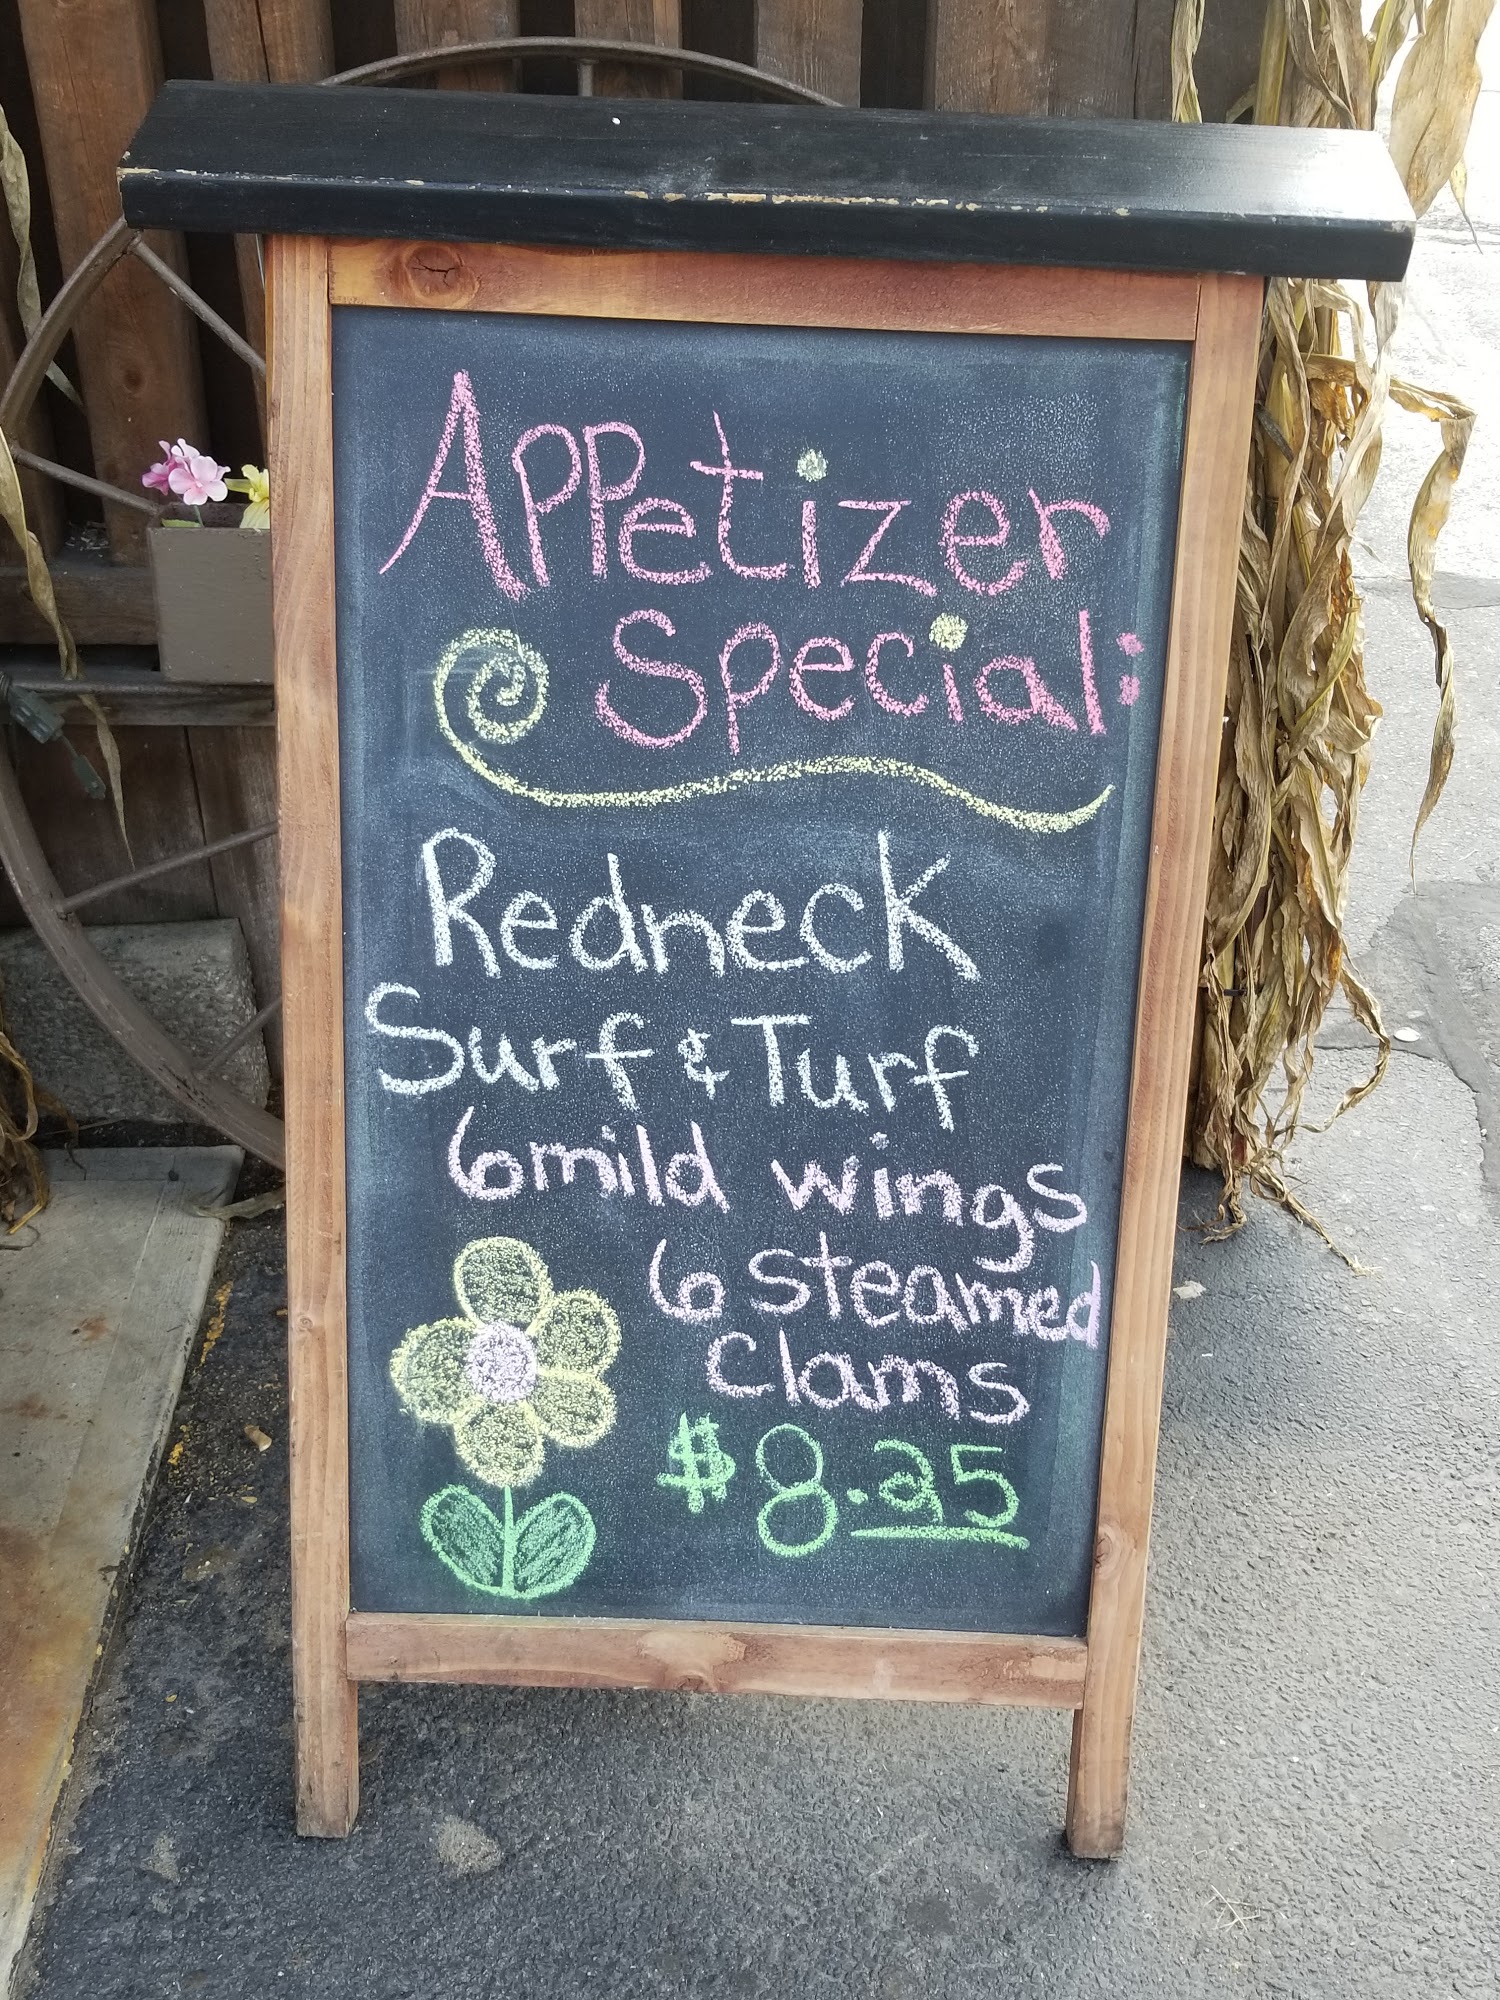 Appetizer
Special:
Redneck
Surf & Turf
6 mild wings
6 steamed
clams
$8.25